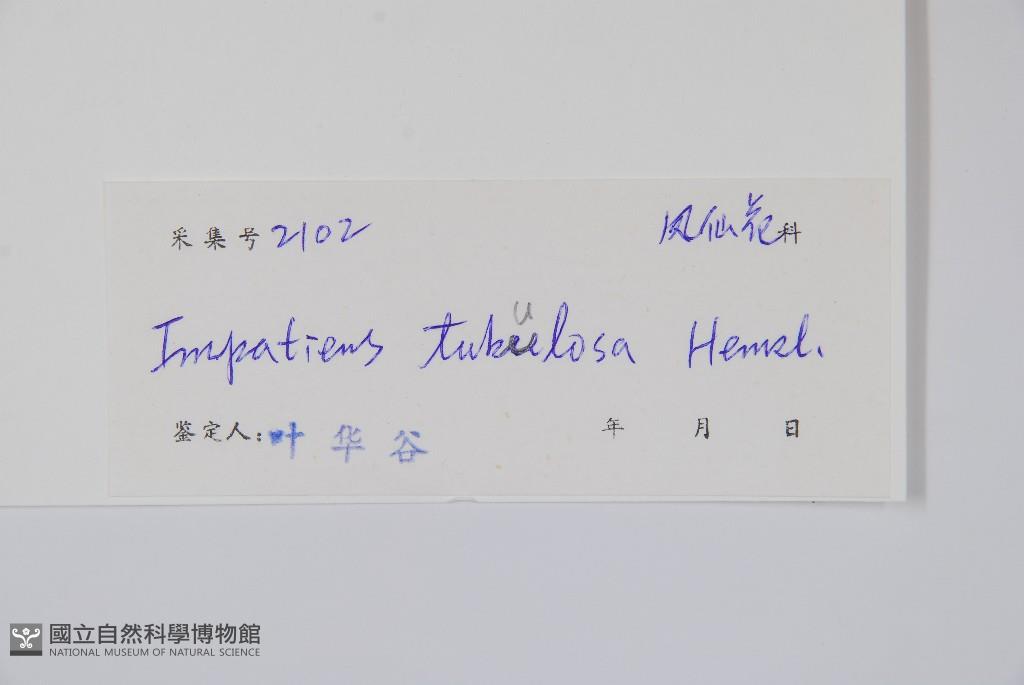 采集号 2102 凤仙花科
Impatiens tubulosa Hemsl.
鉴定人: 叶华谷 年 月 日
國立自然科學博物館
NATIONAL MUSEUM OF NATURAL SCIENCE